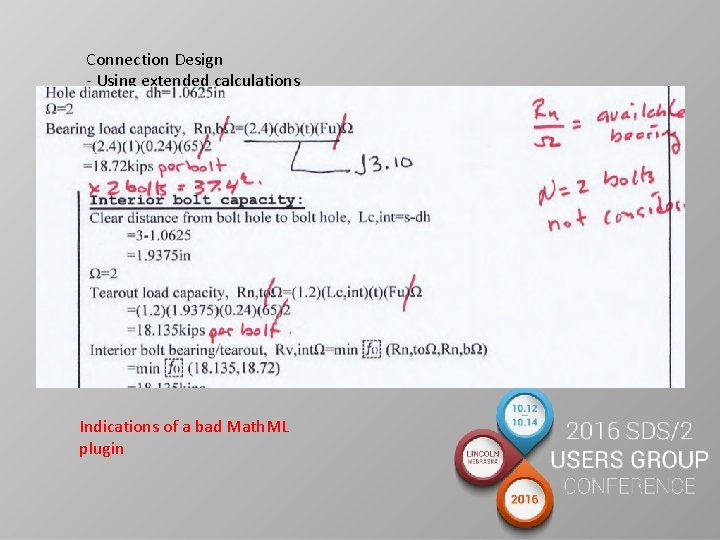 Connection Design
- Using extended calculations
Hole diameter, dh=1.0625in
Ω=2
Bearing load capacity, Rn,bΩ=(2.4)(db)(t)(Fu)/Ω
=(2.4)(1)(0.24)(65)/2
=18.72kips per bolt
J3.10
x 2 bolts = 37.4k.
Rn/Ω = available bearing
N=2 bolts
not
Interior bolt capacity:
Clear distance from bolt hole to bolt hole, Lc,int=s-dh
=3-1.0625
=1.9375in
Ω=2
Tearout load capacity, Rn,toΩ=(1.2)(Lc,int)(t)(Fu)/Ω
=(1.2)(1.9375)(0.24)(65)/2
=18.135kips per bolt.
Interior bolt bearing/tearout, Rv,intΩ=min f0 (Rn,toΩ,Rn,bΩ)
=min f0 (18.135,18.72)
=18.135kips
Indications of a bad MathML
plugin
10.12
–
10.14
LINCOLN
NEBRASKA
2016
2016 SDS/2
USERS GROUP
CONFERENCE